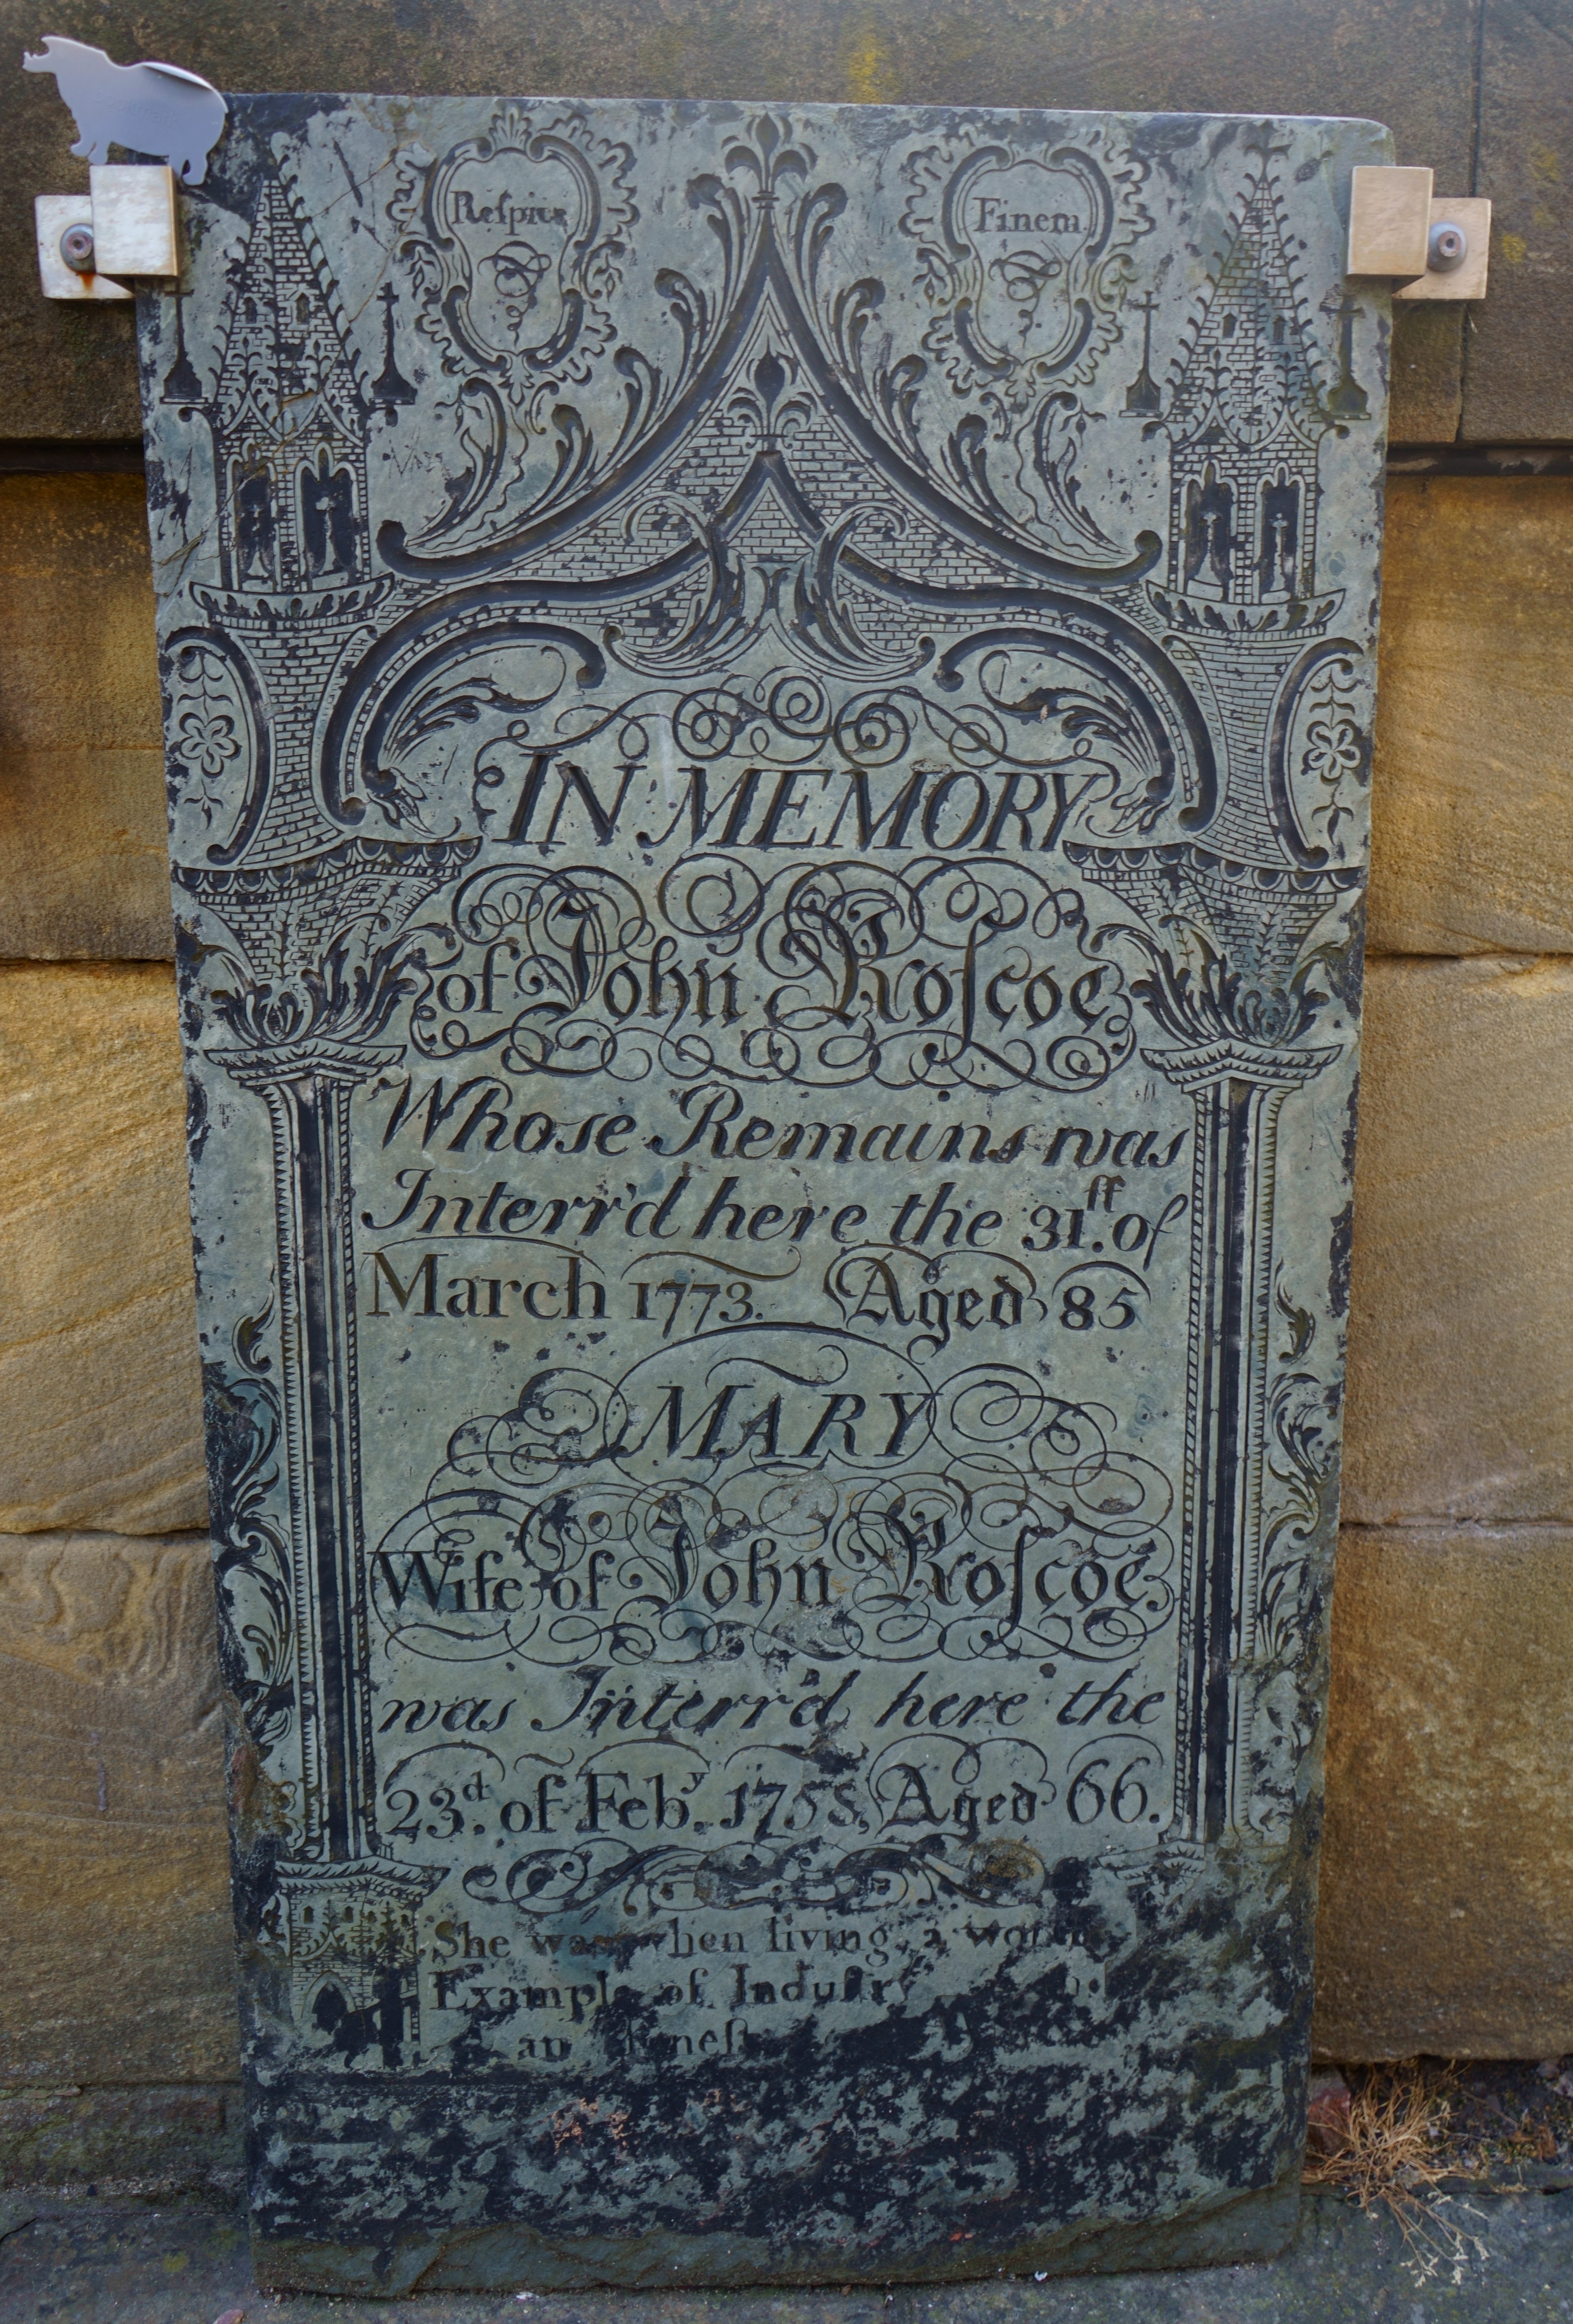 Reſpice Finem
IN MEMORY
of John Roſcoe
Whose Remains was
Interr'd here the 31.ſt of
March 1773. Aged 85
MARY
Wife of John Roſcoe
was Interr'd here the
23.d of Feb.y 1758, Aged 66.
She was when living, a
Example of Induſtry
an